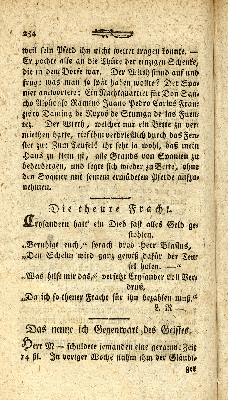 254
weil sein Pferd ihn nicht weiter tragen konnte. —
Er pochte also an die Thüre der einzigen Schenke,
die in dem Dorfe war. Der Wirth stund auf und
frug: was man so spät haben wolle? Der Spa-
nier antwortete: Ein Nachtquartier für Don San-
cho Alphonso Ramiro Juano Pedro Carlos Fran-
zisco Doming de de las Fuen-
tez. Der Wirth, welcher nur ein Bette zu ver-
miethen hatte, rief ihm verdrießlich durch das Fen-
ster zu: Zum Teufel! ihr seht ja wohl, daß mein
Haus zu klein ist, alle Grands von Spanien zu
beherbergen, und legte sich wieder zu Bette, ohne
den Spanier mit seinem ermüdeten Pferde aufzu-
nehmen.
Die theure Fracht.
Crysandern hatt' ein Dieb fast alles Geld ge-
stohlen.
„Beruhigt euch," sprach drob Herr Blasius,
„Den Schelm wird ganz gewiß dafür der Teu-
fel holen." —
„Was hilft mir das," versetzt Crysander voll Ver-
druß,
„Da ich so theuer Fracht für ihn bezahlen muß."
L. R —.
Das nenne ich Gegenwart des Geistes.
Herr M — schuldete jemanden eine geraume Zeit
14 fl. In voriger Woche nahm ihm der Gläubi-
ger